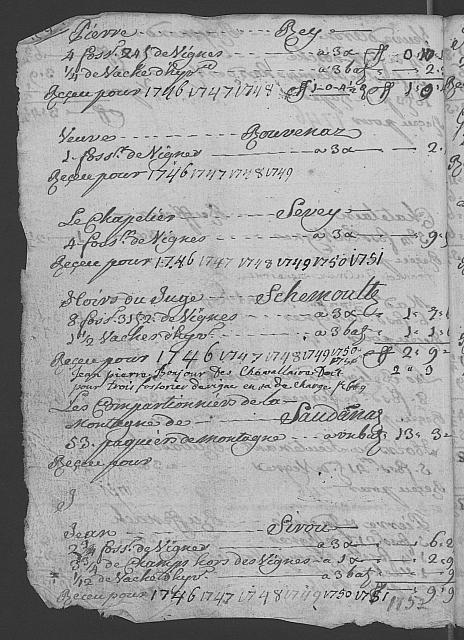 Pierre - - - - - Rey
4 foss.rs 2 4/5 de Vignes - - - a 3 a ff 0 10
1/4 de Vache d'hyv.r - - - a 3 baf - 2 :
Reçeu pour 1746 1747 1748 ff 1-0-4 1/2 ff 1 : 9
Veuve - - - - - Bouvenaz
1 - foss.r de Vignes - a 3 a - - 2 .
Reçeu pour 1746 1747 1748 1749
Le Chapelier - - - - Sevey - - -
4 - foss.rs de Vignes - - - a 3 a - - 9 9
Reçeu pour 1746 1747 1748 1749 1750 1751
Hoirs du Juge Schemoulte
8 foss. de Vignes - - - a 3 a 1 : 7 :
1 1/2 Vaches d'hyv.r - - - a 3 baf - 1 : 1 :
Reçeu pour 1746 1747 1748 1749 1750 ff 2 = 9 -
Jean pierre Des Chavallaire Doit 2 = 9
pour trois fossorier de vigne
Les Compartionniers de la
Montagne de - - - - Saudanaz
53 . paquiers de montagne - 13 = 3
Reçeu pour
Jean - - - - - Sirou
2 3/4 foss.rs de Vignes - - - a 3 a - 6 : 2
de Champs hors des Vignes - a 1 a - 2 :
1 1/2 de Vache d'hyv.r - - - a 3 baf
Reçeu pour 1746 1747 1748 1749 1750 1751 9 : 9
1752